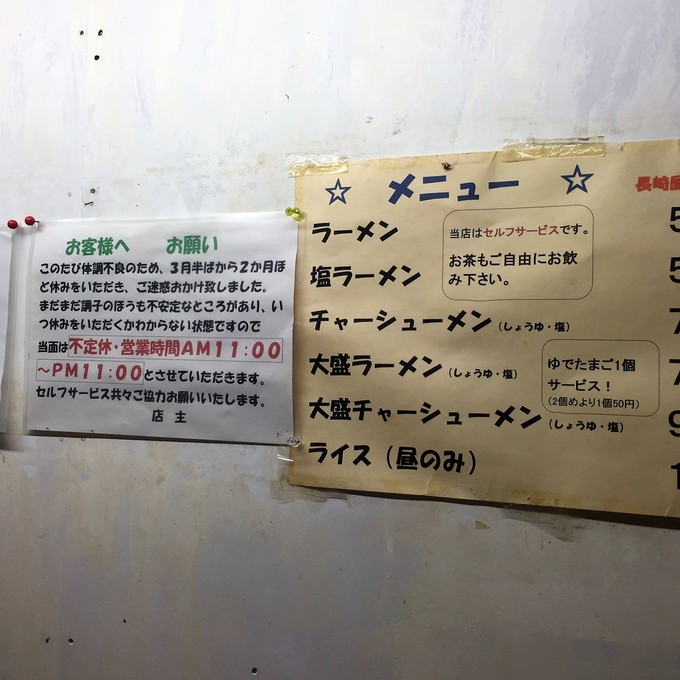 お客様へ　お願い
このたび体調不良のため、3月半ばから2か月ほ
ど休みをいただき、ご迷惑おかけ致しました。
まだまだ調子のほうも不安定なところがあり、い
つ休みをいただくかわからない状態ですので
当面は不定休・営業時間AM11:00
～PM11:00とさせていただきます。
セルフサービス共々ご協力お願いいたします。
店　主
☆ メニュー ☆
長崎
ラーメン
塩ラーメン
チャーシューメン（しょうゆ・塩）
大盛ラーメン（しょうゆ・塩）
大盛チャーシューメン（しょうゆ・塩）
ライス（昼のみ）
当店はセルフサービスです。
お茶もご自由にお飲
み下さい。
ゆでたまご1個
サービス！
（2個めより1個50円）